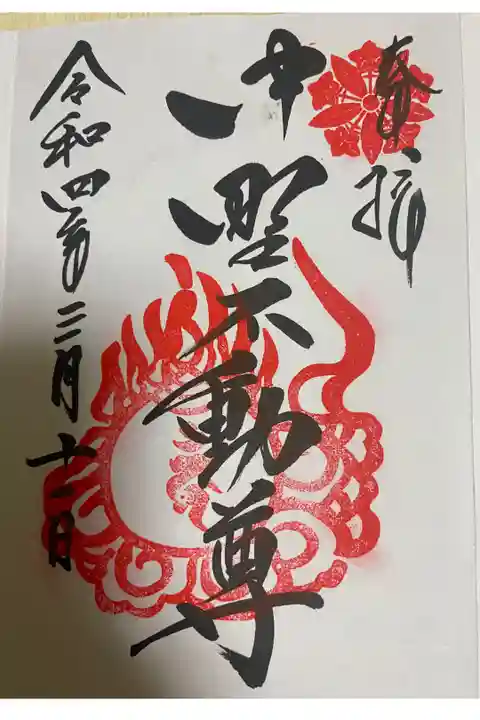 奉拝
不動尊
令和四年三月十一日